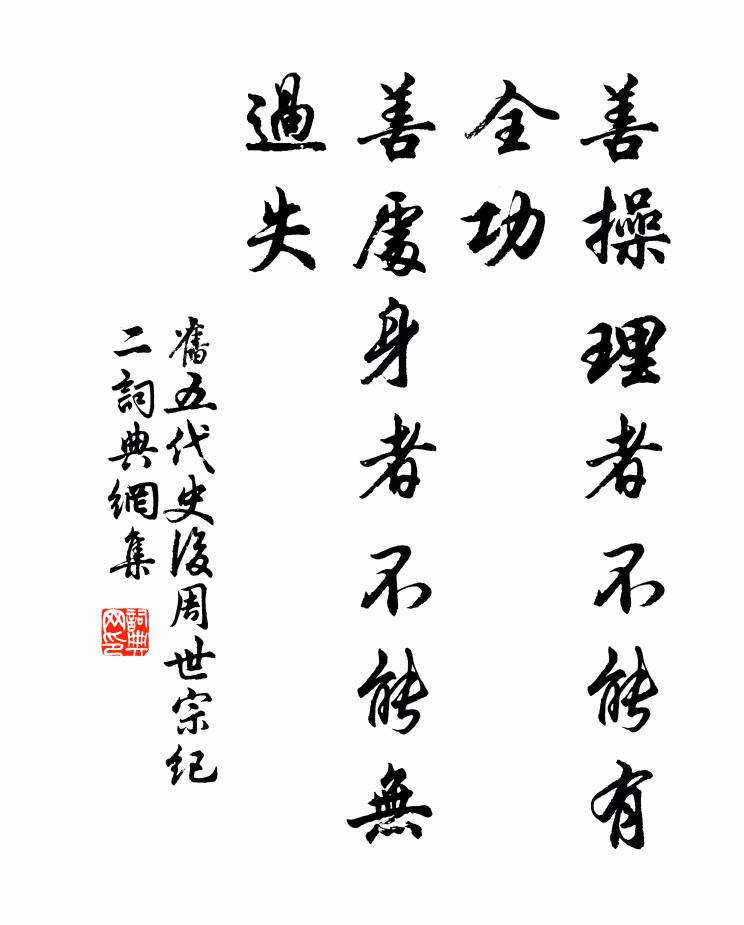 善操理者不能有
全功
善處身者不能無
過失
舊五代史後周世宗紀
二詞典網集
詞典
網印